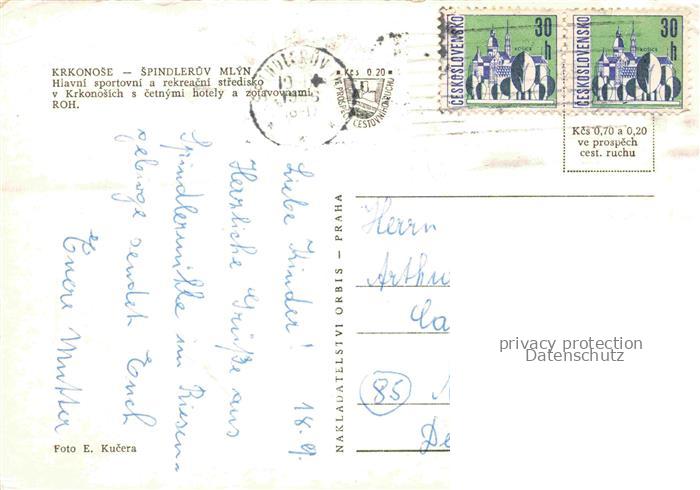 KRKONOŠE — ŠPINDLERŮV MLÝN
Hlavní sportovní a rekreační středisko
v Krkonoších s četnými hotely a zotavovnami
ROH.
Kčs 0.20
VE PROSPĚCH CESTOVNÍHO RUCHU
ČESKOSLOVENSKO
30
h
KOŠICE
ČESKOSLOVENSKO
30
h
KOŠICE
Kčs 0,70 a 0,20
ve prospěch
cest. ruchu
18.9.
Liebe Kinder!
Herzliche Grüße aus
Spindlermühle im Riesen-
gebirge sendet Euch
Euere Mutter
NAKLADATELSTVÍ ORBIS — PRAHA
Herrn
Arthu
Ca
(85)
De
privacy protection
Datenschutz
Foto E. Kučera